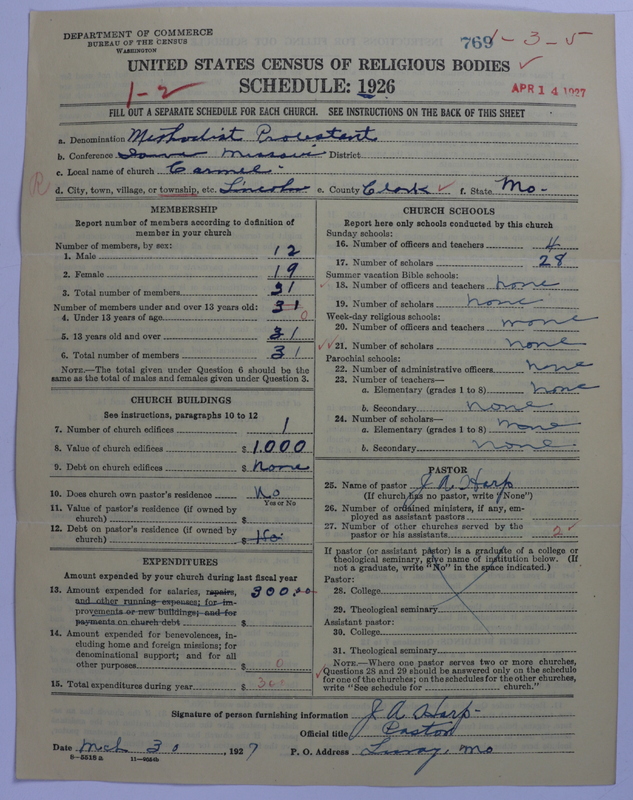 DEPARTMENT OF COMMERCE
BUREAU OF THE CENSUS
WASHINGTON
769 1-3-5
UNITED STATES CENSUS OF RELIGIOUS BODIES
1-2 SCHEDULE: 1926
APR 14 1927
FILL OUT A SEPARATE SCHEDULE FOR EACH CHURCH. SEE INSTRUCTIONS ON THE BACK OF THIS SHEET
a. Denomination Methodist Protestant
b. Conference Missouri District
c. Local name of church Carmel
R d. City, town, village, or township, etc. Lincoln e. County Clark f. State Mo-
MEMBERSHIP
Report number of members according to definition of member in your church
Number of members, by sex:
1. Male 12
2. Female 19
3. Total number of members 31
Number of members under and over 13 years old:
4. Under 13 years of age 31 0
5. 13 years old and over 31
6. Total number of members 31
NOTE.—The total given under Question 6 should be the
same as the total of males and females given under Question 3.
CHURCH BUILDINGS
See instructions, paragraphs 10 to 12
7. Number of church edifices 1
8. Value of church edifices $ 1.000
9. Debt on church edifices $ none
10. Does church own pastor's residence No
Yes or No
11. Value of pastor's residence (if owned by
church) $
12. Debt on pastor's residence (if owned by
church) $ No
EXPENDITURES
Amount expended by your church during last fiscal year
13. Amount expended for salaries, repairs, 300.00
and other running expenses; for im-
provements or new buildings; and for
payments on church debt $
14. Amount expended for benevolences, in-
cluding home and foreign missions; for
denominational support; and for all
other purposes $ 0
15. Total expenditures during year $ 300
CHURCH SCHOOLS
Report here only schools conducted by this church
Sunday schools:
16. Number of officers and teachers 4
17. Number of scholars 28
Summer vacation Bible schools:
18. Number of officers and teachers none
19. Number of scholars none
Week-day religious schools:
20. Number of officers and teachers none
21. Number of scholars none
Parochial schools:
22. Number of administrative officers none
23. Number of teachers—
a. Elementary (grades 1 to 8) none
b. Secondary none
24. Number of scholars—
a. Elementary (grades 1 to 8) none
b. Secondary none
PASTOR
25. Name of pastor J A Harp
(If church has no pastor, write "None")
26. Number of ordained ministers, if any, em-
ployed as assistant pastors
27. Number of other churches served by the
pastor or his assistants 2
If pastor (or assistant pastor) is a graduate of a college or
theological seminary, give name of institution below. (If
not a graduate, write "No" in the space indicated.)
Pastor:
28. College
29. Theological seminary
Assistant pastor:
30. College
31. Theological seminary
NOTE.—Where one pastor serves two or more churches,
Questions 28 and 29 should be answered only on the schedule
for one of the churches; on the schedules for the other churches,
write "See schedule for church."
Signature of person furnishing information J. A Harp-
Official title Pastor
Date Mch 30, 1927 P. O. Address Luray, Mo
8-5518 a 11-9024b